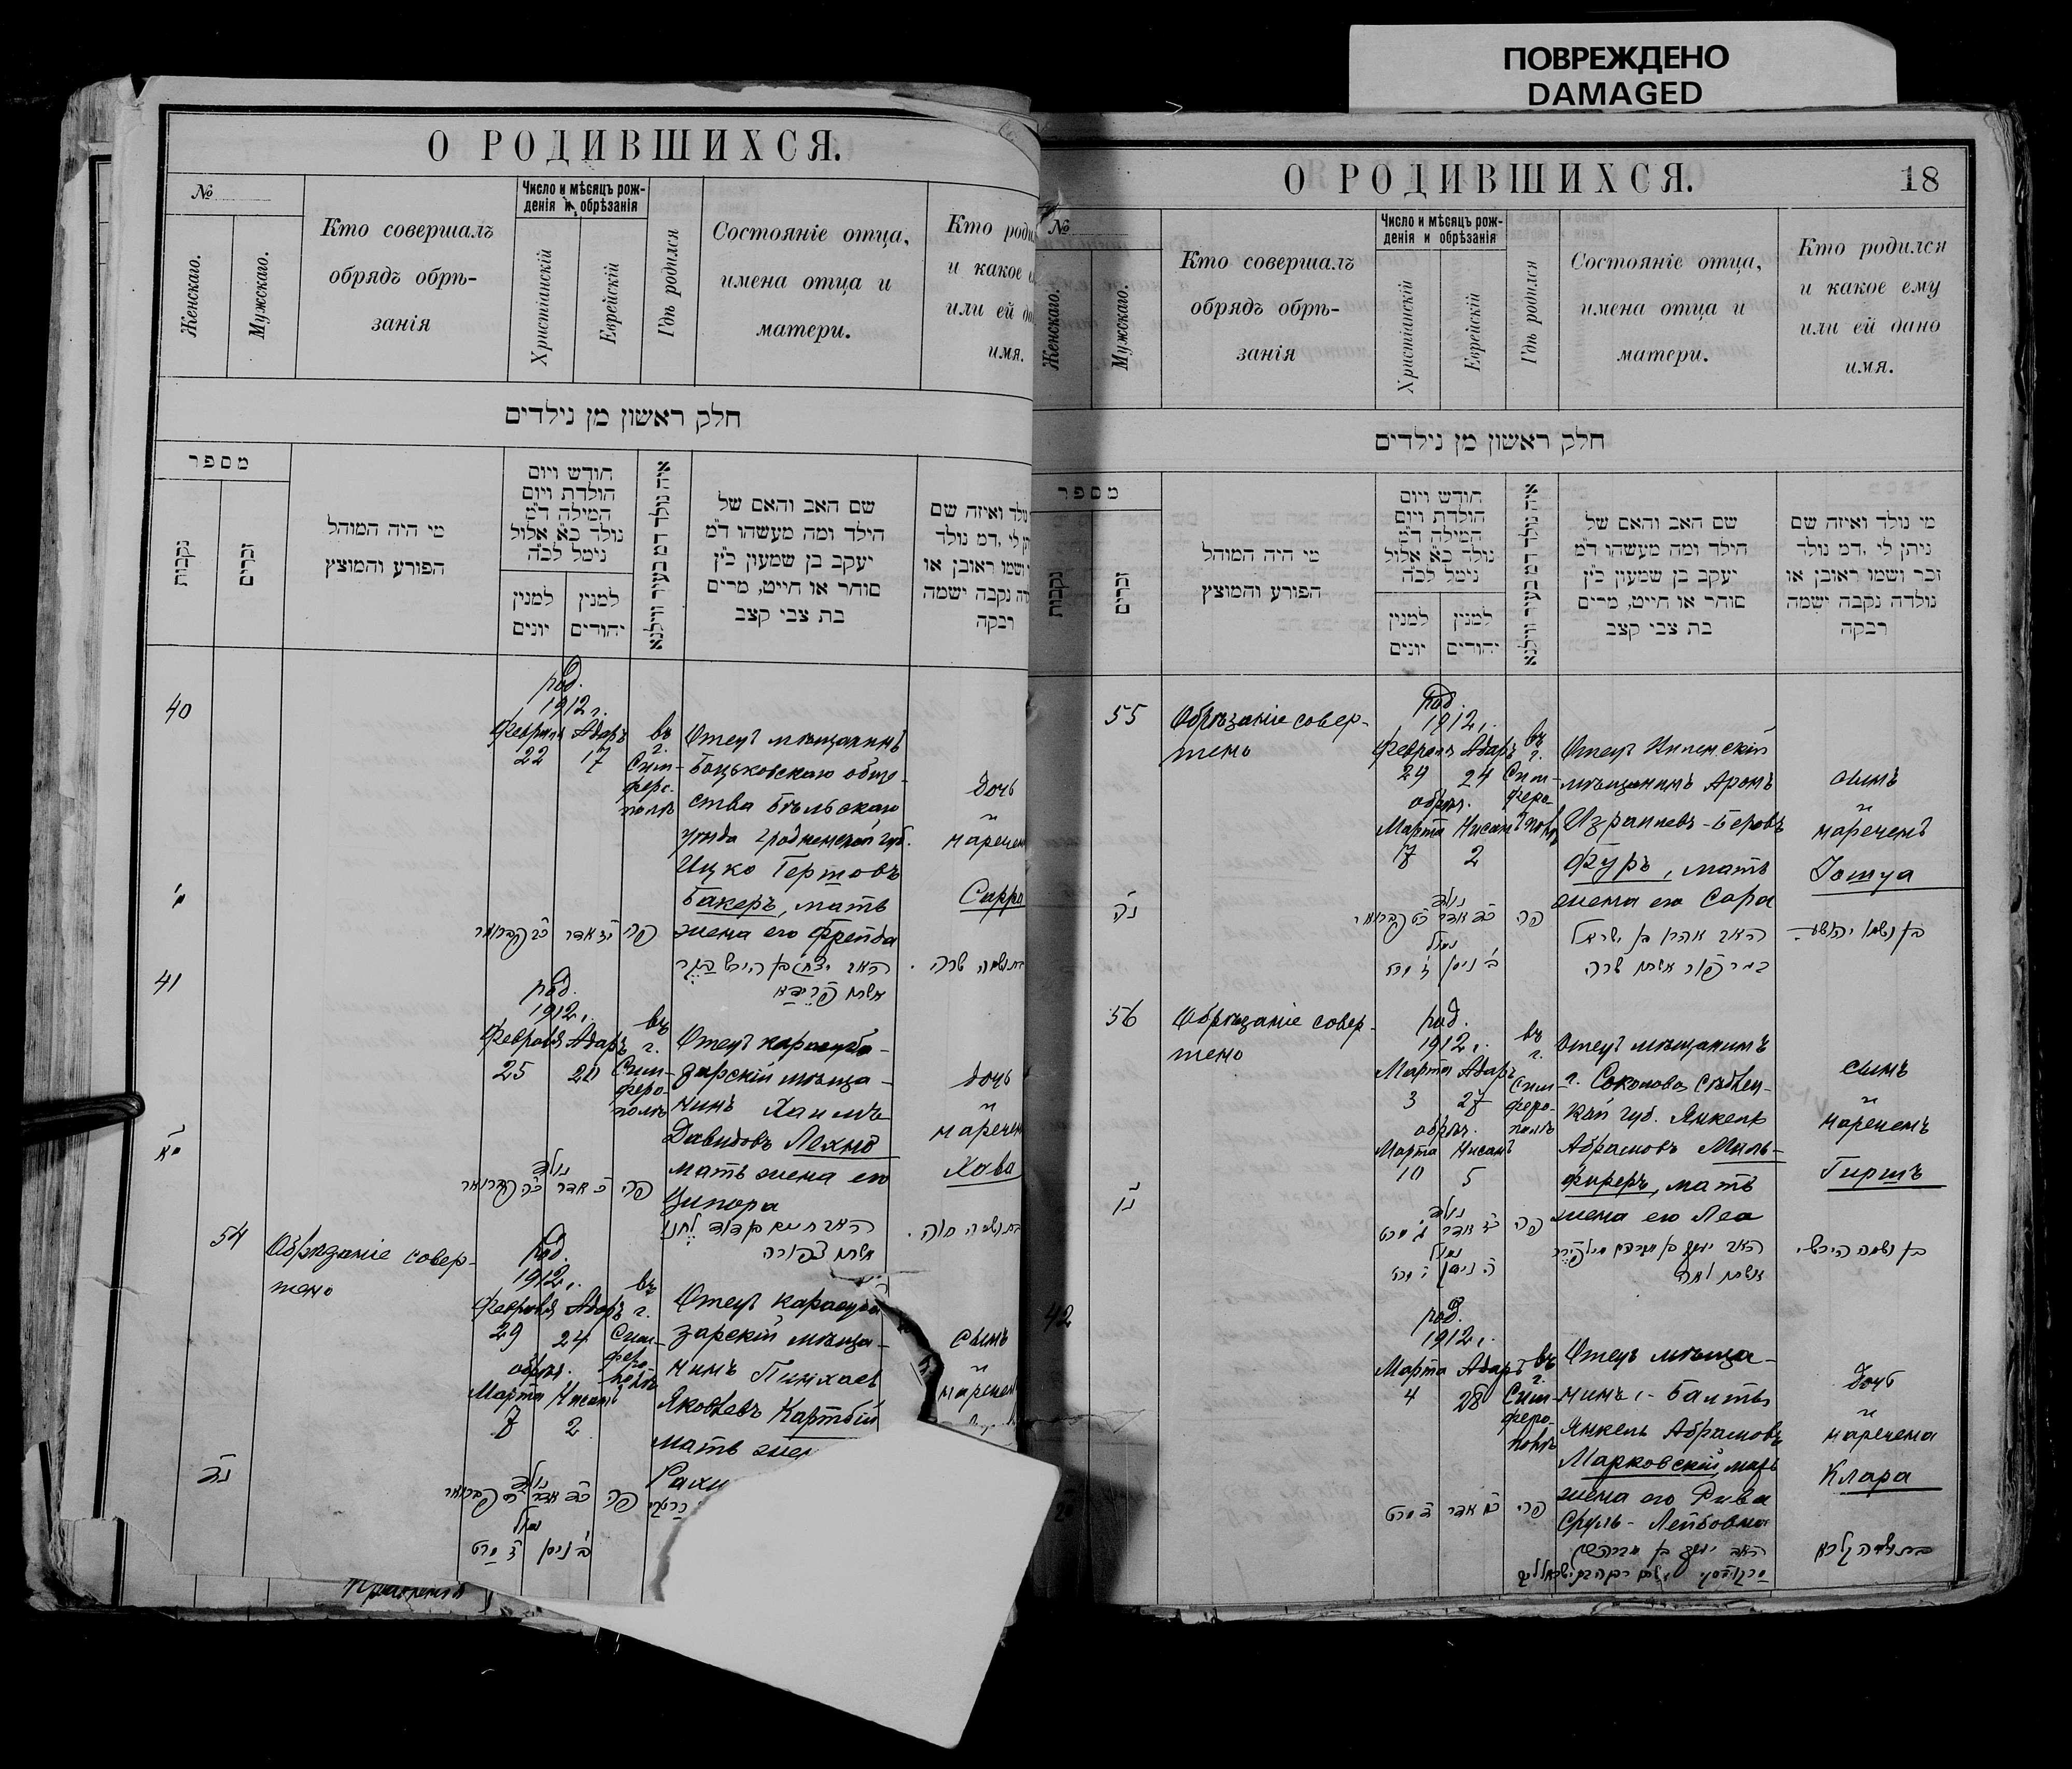 ПОВРЕЖДЕНО
DAMAGED
О РОДИВШИХСЯ.
№
Женскаго.
Мужскаго.
Кто совершалъ
обрядъ обрѣ-
занія
Число и мѣсяцъ рож-
денія и обрѣзанія
Христіанскій
Еврейскій
Гдѣ родился
Состояніе отца,
имена отца и
матери.
Кто роди
и какое
или ей да
имя.
חלק ראשון מן נילדים
מספר
נקבות
זכרים
מי היה המוהל
הפורע והמוצץ
חודש ויום
הולדת ויום
המילה ד"מ
נולד כ"א אלול
נימל לכ"ה
למנין
יונים
למנין
יהודים
איה נולד דמ בעיר ווילנא
שם האב והאם של
הילד ומה מעשהו ד"מ
יעקב בן שמעון כ"ץ
סוחר או חייט, מרים
בת צבי קצב
נולד ואיזה שם
תן לי .דמ נולד
ושמו ראובן או
דה נקבה ישמה
רבקה
40
род.
1912 г.
Февраля Адаръ
22 17
въ
г.
Сим-
феро-
полѣ
Отецъ мѣщанинъ
Боцьковскаго обще-
ства Бѣльскаго
уѣзда Гродненской губ.
Ицко Гертовъ
Бакеръ, мать
жена его Фрейда
Дочь
и
наречен
Сарра
41
род.
1912 г.
Февраля Адаръ
25 20
въ
г.
Сим-
феро-
полѣ
Отецъ карасуба-
зарскій мѣща-
нинъ Хаимъ
Давидовъ Лехно
мать жена его
Ципора
дочь
и
наречен
Хава
54
Обрѣзаніе совер-
шено
род.
1912 г.
Февраля Адаръ
29 24
обрѣз.
Марта Нисанъ
7 2
въ
г.
Сим-
феро-
полѣ
Отецъ карасуба
зарскій мѣща-
нинъ Пинхасъ
Яковлевъ Картбій
мать жен
Рахи
сынъ
и
наречен
О РОДИВШИХСЯ.
18
№
Женскаго.
Мужскаго.
Кто совершалъ
обрядъ обрѣ-
занія
Число и мѣсяцъ рож-
денія и обрѣзанія
Христіанскій
Еврейскій
Гдѣ родился
Состояніе отца,
имена отца и
матери.
Кто родился
и какое ему
или ей дано
имя.
חלק ראשון מן נילדים
מספר
נקבות
זכרים
מי היה המוהל
הפורע והמוצץ
חודש ויום
הולדת ויום
המילה ד"מ
נולד כ"א אלול
נימל לכ"ה
למנין
יונים
למנין
יהודים
איה נולד דמ בעיר ווילנא
שם האב והאם של
הילד ומה מעשהו ד"מ
יעקב בן שמעון כ"ץ
סוחר או חייט, מרים
בת צבי קצב
מי נולד ואיזה שם
ניתן לי .דמ נולד
זכר ושמו ראובן או
נולדה נקבה ישמה
רבקה
55
Обрѣзаніе совер-
шено
род.
1912 г.
Февраля Адаръ
29 24
обрѣз.
Марта Нисанъ
7 2
въ
г.
Сим-
феро-
полѣ
Отецъ
мѣщанинъ Аронъ
Израилевъ-Беровъ
Фуръ, мать
жена его Сара
сынъ
и
нареченъ
Іошуа
נה
האב אהרן בן ישראל
בער פור אשתו שרה
בן ושמו יהושע
56
Обрѣзаніе совер-
шено
род.
1912 г.
Марта Адаръ
3 27
обрѣз.
Марта Нисанъ
10 5
въ
г.
Сим-
феро-
полѣ
Отецъ мѣщанинъ
г. Соколова Сѣдлец-
кой губ. Янкель
Абрамовъ Миль-
фиреръ, мать
жена его Леа
сынъ
и
нареченъ
Гиршъ
נו
42
род.
1912 г.
Марта Адаръ
4 28
въ
г.
Сим-
феро-
полѣ
Отецъ мѣща-
нинъ г. Балты
Янкель Абрамовъ
Марковскій, мать
жена его Рива
Сруль-Лейбовна
Дочь
и
наречена
Клара